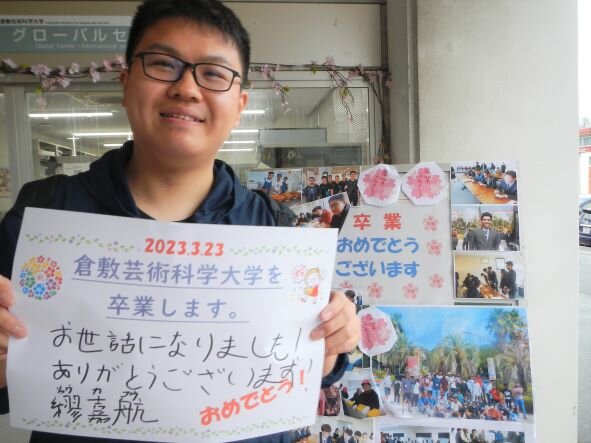 倉敷芸術科学大学
グローバルセ
Global Center
2023.3.23
倉敷芸術科学大学を
卒業します。
お世話になりました！
ありがとうございます！
繆嘉航
おめでとう！
卒業
おめでとう
ございます